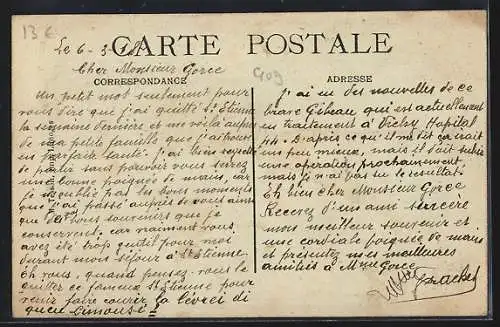 13 €
Le 6-3-
CARTE POSTALE
Cher Monsieur Gorce
CORRESPONDANCE
un petit mot seulement pour
vous dire que j'ai quitté St Etienne
la semaine dernière et me voilà auprès
de ma petite famille que j'ai trouvé
en parfaite santé. J'ai bien regretté
de partir sans pouvoir vous serrez
une bonne poignée de mains, car
je oublie pas les bons moments
que j'ai passé auprès de vous ainsi
que des bons souvenirs que je
conservent, car vraiment vous
avez été trop gentil pour moi
durant mois séjour à St Etienne.
Eh vous, quand pensez-vous le
quitter ce fameux St Etienne pour
venir faire courir la livrei di
queu limousi
ADRESSE
J'ai eu des nouvelles de ce
brave Gibeau qui est actuellement
en traitement à Vichy Hopital
44. D'après ce qu'il me dit ça irait
un peu mieux, mais il doit subir
une opération prochainement
mais je n'ai pas su le resultat.
Eh bien Cher Monsieur Gorce
Recevez d'un ami sincère
mon meilleur souvenir et
une cordiale poignée de mains
et présentez mes meilleures
amitiés à Mme Gorce